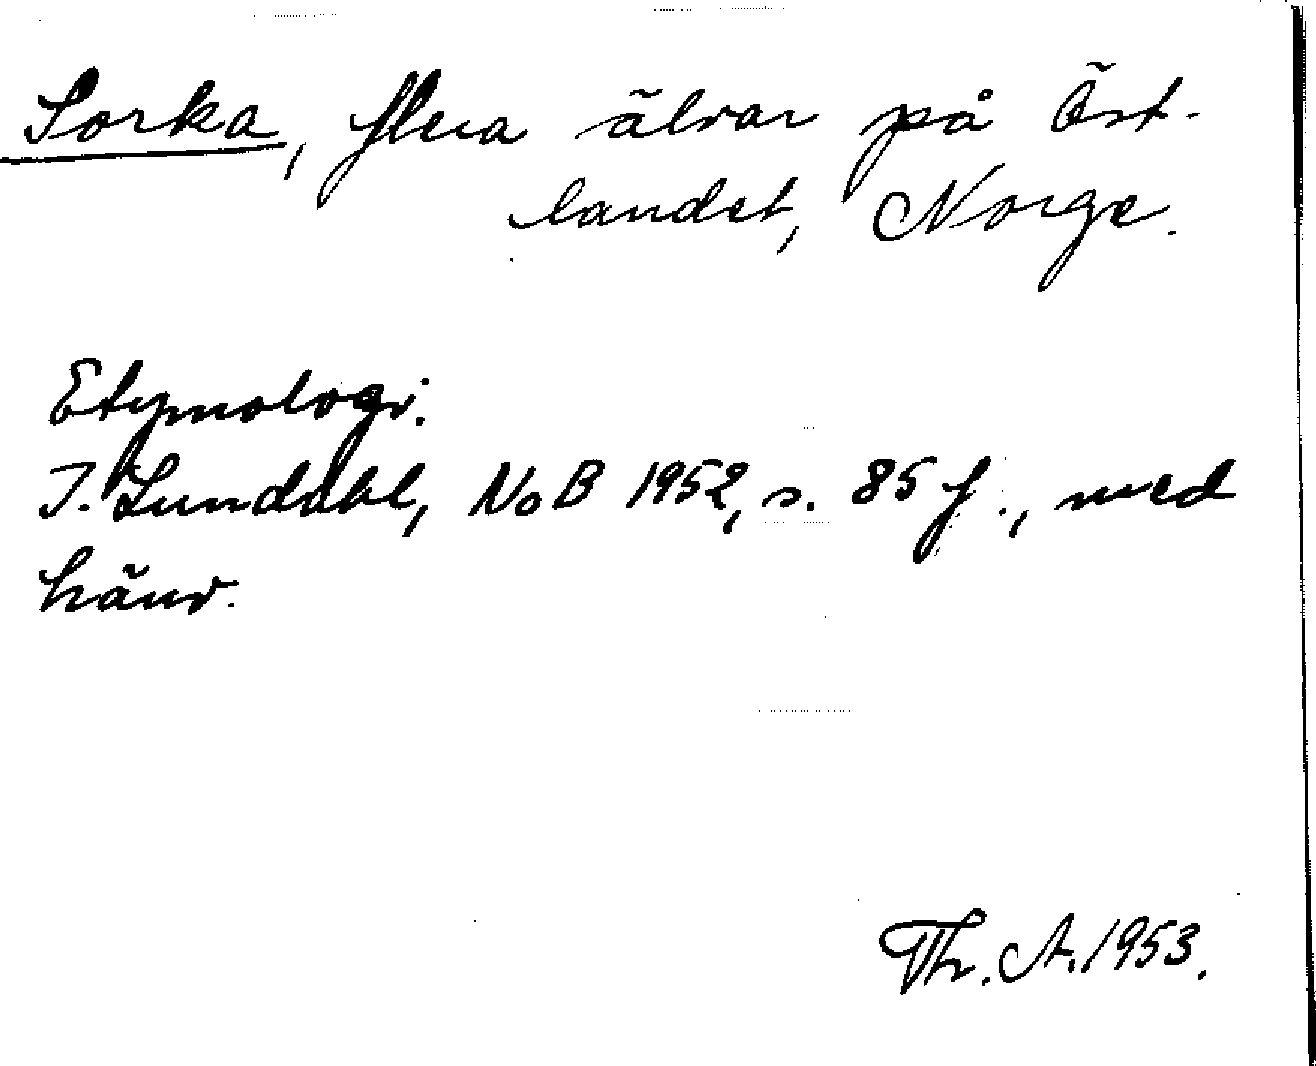 Sorka, flera älvar på Öst-
landet, Norge.
Etymologi.
I. Lundahl, NoB 1952, s. 85 f., med
hänv.
Th. A. 1953.